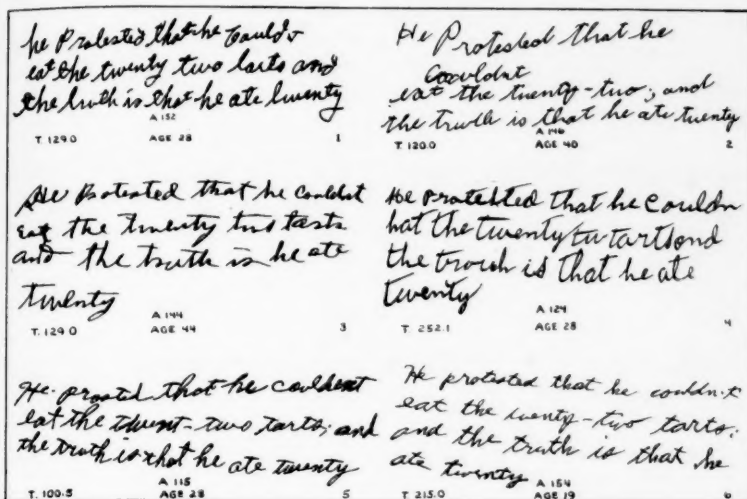 he Protested that he Could
eat the twenty two tarts and
the truth is that he ate twenty
A 152
T. 129.0 AGE 28 1
He Protested that he
Coouldnt
eat the twenty-two; and
the truth is that he ate twenty
A 146
T. 120.0 AGE 40 2
He Protested that he Couldnt
eat the twenty two tarts
and the truth is he ate
twenty
A 144
T. 129.0 AGE 44 3
He Protehted that he couldn
hat the twenty tu tarts and
the trouth is that he ate
twenty
A 124
T. 252.1 AGE 28 4
He that he
eat the twent-two tarts; and
the truth is that he ate twenty
A 115
T. 100.5 AGE 28 5
He protested that he couldn't
eat the wenty-two tarts;
and the truth is that he
ate twenty
A 154
T. 215.0 AGE 19 6